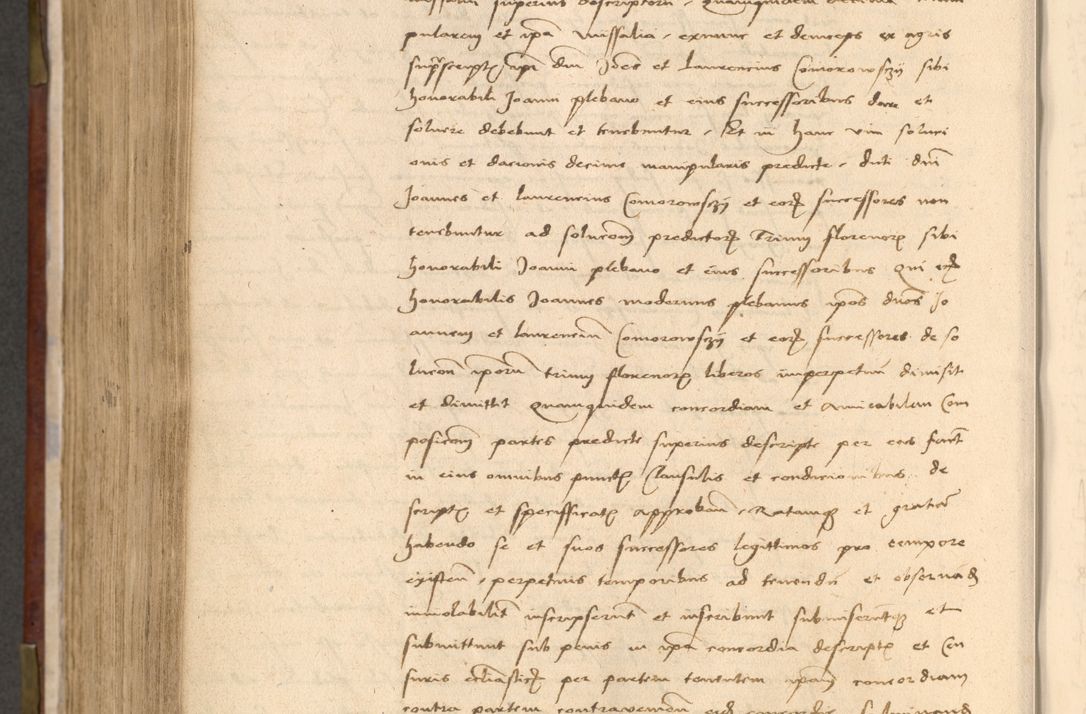 superius descriptorum quamquidem
pularem et ipa missalia, exnunc et deinceps ex agris
suprascriptis ipi dni Joes et Laurencius Comorowsczÿ sibi
honorabili Joanni plebano et eius successoribus dare et
solvere debebunt et tenebuntur, Et in hanc vim soluci
onis et dacionis decime manipularis predicte, dicti dni
Joannes et Laurencius Comorowsczÿ et eorz successores non
tenebuntur ad solucom predictorz trium florenorz sibi
honorabili Joanni plebano et eius successoribus Qui
honorabilis Joannes modernus plebanus ipos dnos Jo
annem et Laurencium Comorowsczÿ et eorz successores de so
lucom iporum trium florenorz liberos imperpetuum dimisit
et dimittit Quamquidem concordiam et amicabilem Com
posicom partes predicte superius descripte per eos fact
in eius omnibus punctis Clausulis et condicionibus de
scriptis et specifficatis approban, Ratamqz et gratam
habendo se et suos successores legittimos pro tempore
existen, perpetuis temporibus ad tenendu et observandz
inviolabilit inscripserut et inscribunt submiserutqz et
submittunt sub penis in ipa concordia descriptis et Cen
suris ecclasticis per partem tenentem ipam concordiam
contra partem contravenien